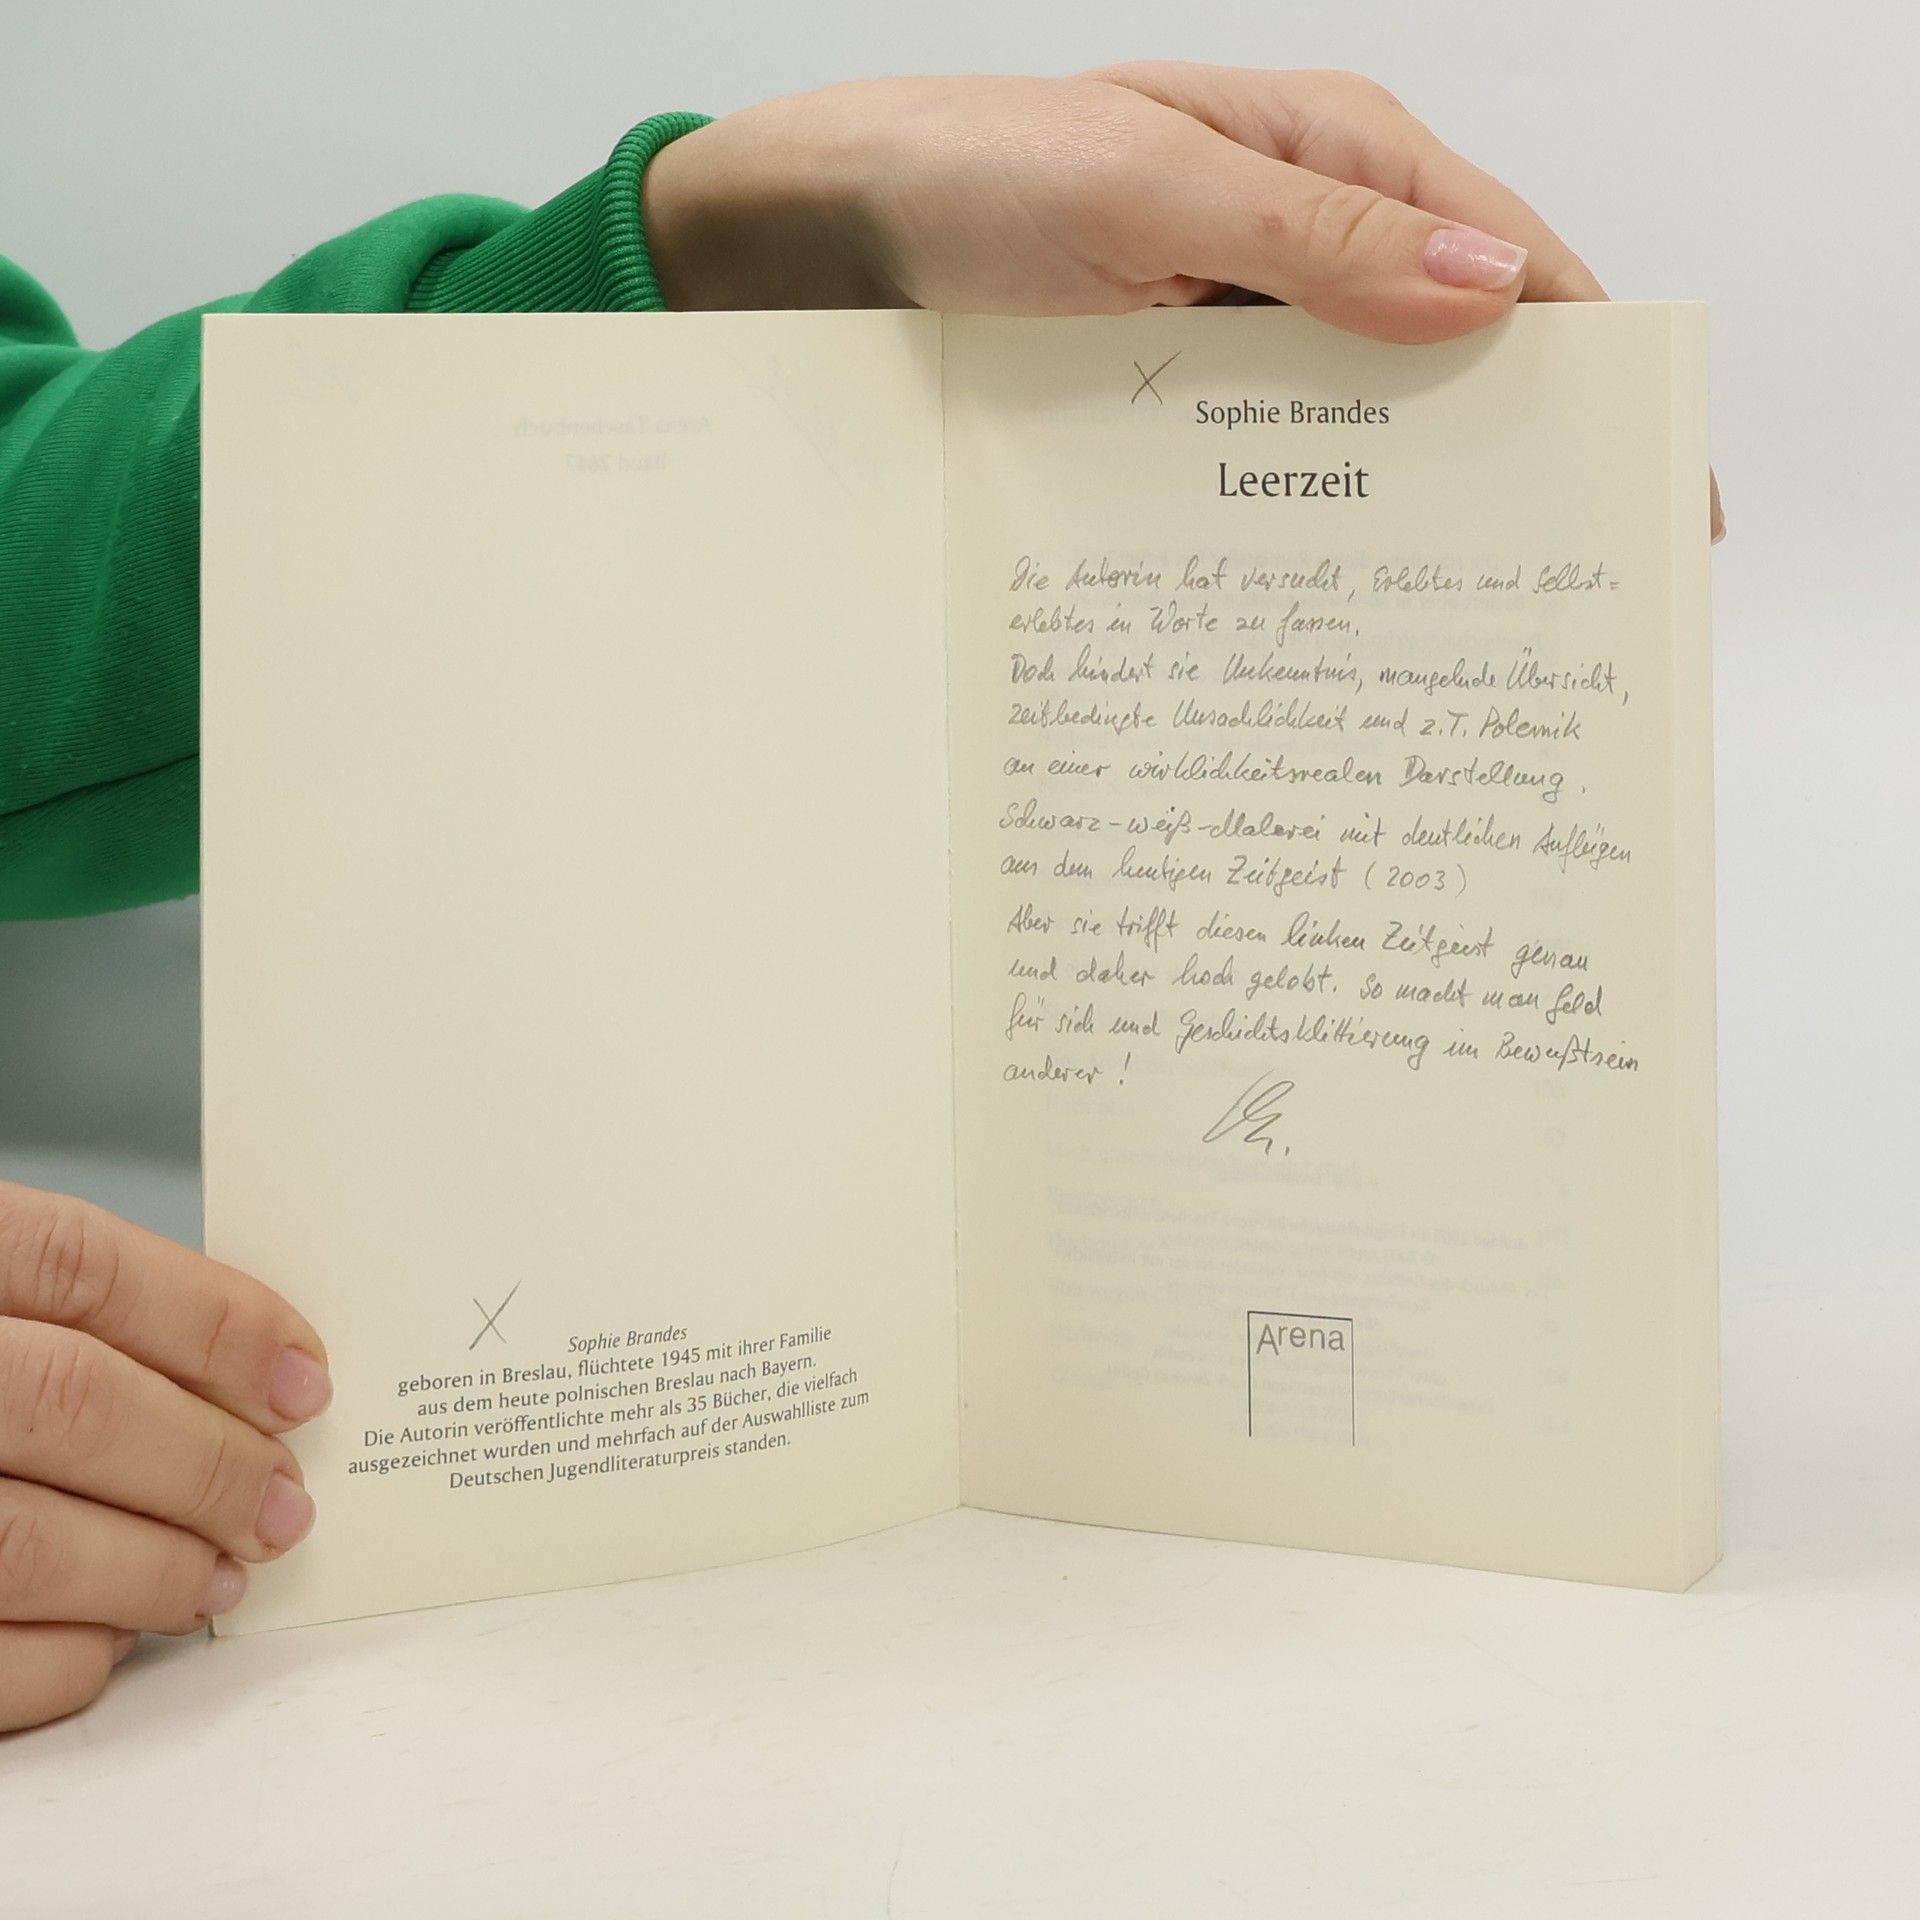 Sophie Brandes
geboren in Breslau, flüchtete 1945 mit ihrer Familie
aus dem heute polnischen Breslau nach Bayern.
Die Autorin veröffentlichte mehr als 35 Bücher, die vielfach
ausgezeichnet wurden und mehrfach auf der Auswahlliste zum
Deutschen Jugendliteraturpreis standen.
Sophie Brandes
Leerzeit
Die Autorin hat versucht, Erlebtes und Selbst=
erlebtes in Worte zu fassen.
Doch hindert sie Unkenntnis, mangelnde Übersicht,
zeitbedingte Unsachlichkeit und z.T. Polemik
an einer wirklichkeitsrealen Darstellung.
Schwarz-weiß-Malerei mit deutlichen Anflügen
aus dem heutigen Zeitgeist (2003)
Aber sie trifft diesen linken Zeitgeist genau
und daher hoch gelobt. So macht man Geld
für sich und Geschichtsklittierung im Bewußtsein
anderer!
Arena